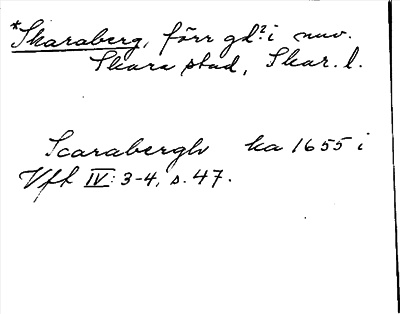 *Skaraberg, förr gd? i nuv.
Skara stad, Skar. l.
Scarabergh ka 1655 i
Vft IV: 3-4, s. 47.